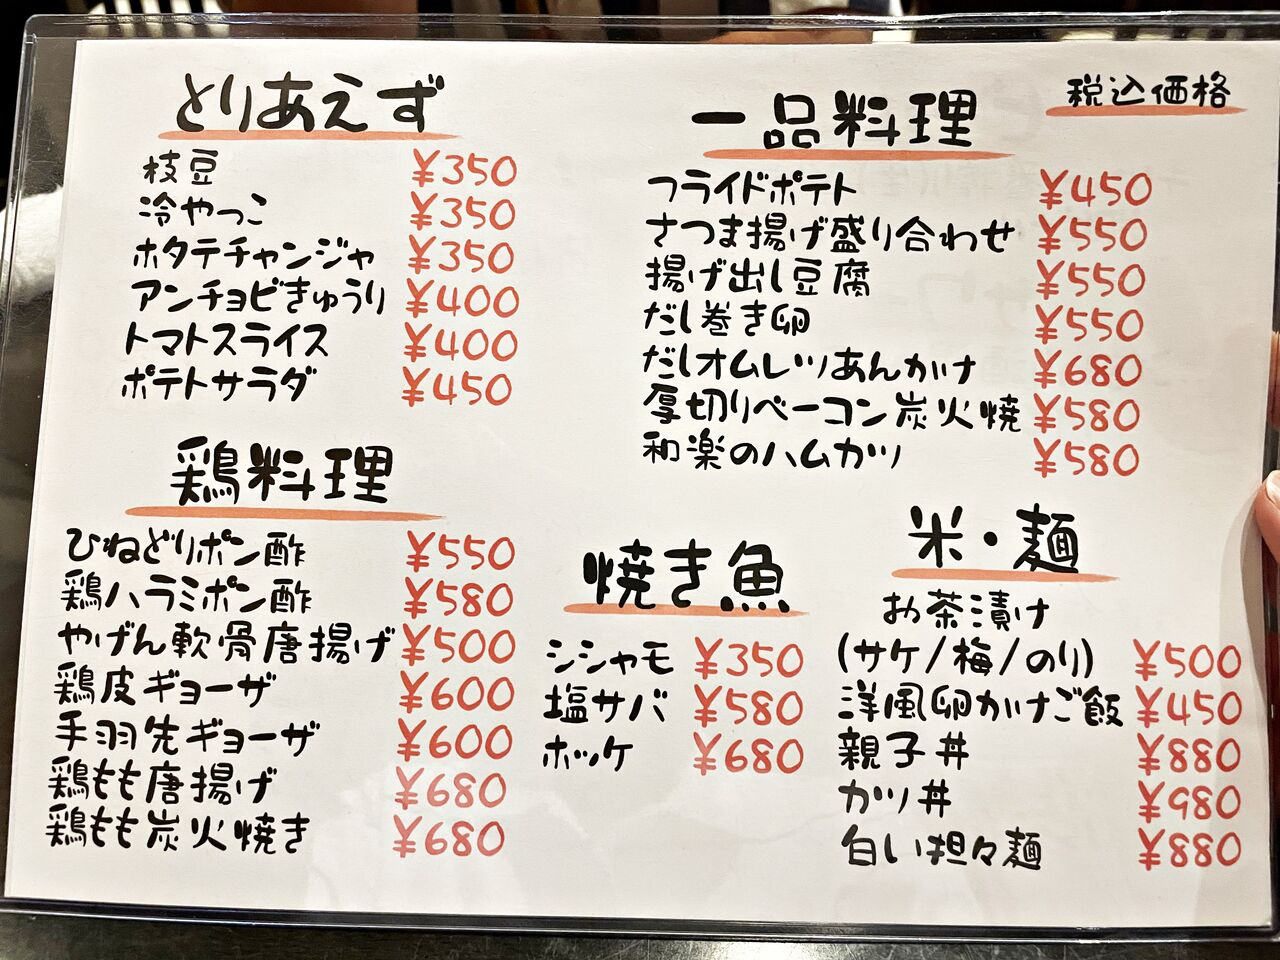 とりあえず
枝豆 ¥350
冷やっこ ¥350
ホタテチャンジャ ¥350
アンチョビきゅうり ¥400
トマトスライス ¥400
ポテトサラダ ¥450
鶏料理
ひねどりポン酢 ¥550
鶏ハラミポン酢 ¥580
やげん軟骨唐揚げ ¥500
鶏皮ギョーザ ¥600
手羽先ギョーザ ¥600
鶏もも唐揚げ ¥680
鶏もも炭火焼き ¥680
税込価格
一品料理
フライドポテト ¥450
さつま揚げ盛り合わせ ¥550
揚げ出し豆腐 ¥550
だし巻き卵 ¥550
だしオムレツあんかけ ¥680
厚切りベーコン炭火焼 ¥580
和楽のハムカツ ¥580
焼き魚
シシャモ ¥350
塩サバ ¥580
ホッケ ¥680
米・麺
お茶漬け
(サケ/梅/のり) ¥500
洋風卵かけご飯 ¥450
親子丼 ¥880
カツ丼 ¥980
白い担々麺 ¥880